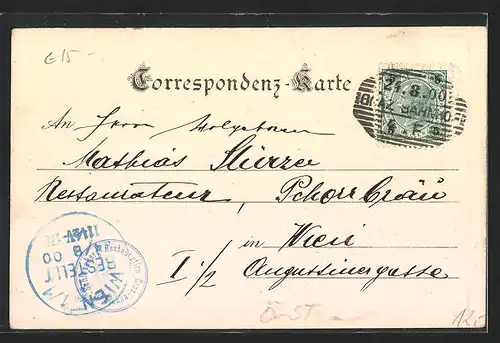 €15-
Correspondenz-Karte
6
24.8.00
GRAZ BAHNHOF
F
An Herrn Wolgeboren
Mathias Stierze
Restaurateur, Pschorrbräu
in Wien
I 1/2 Augustinergasse
WIEN 1/1
BESTELLT
8 00
Ö-ST
12,-